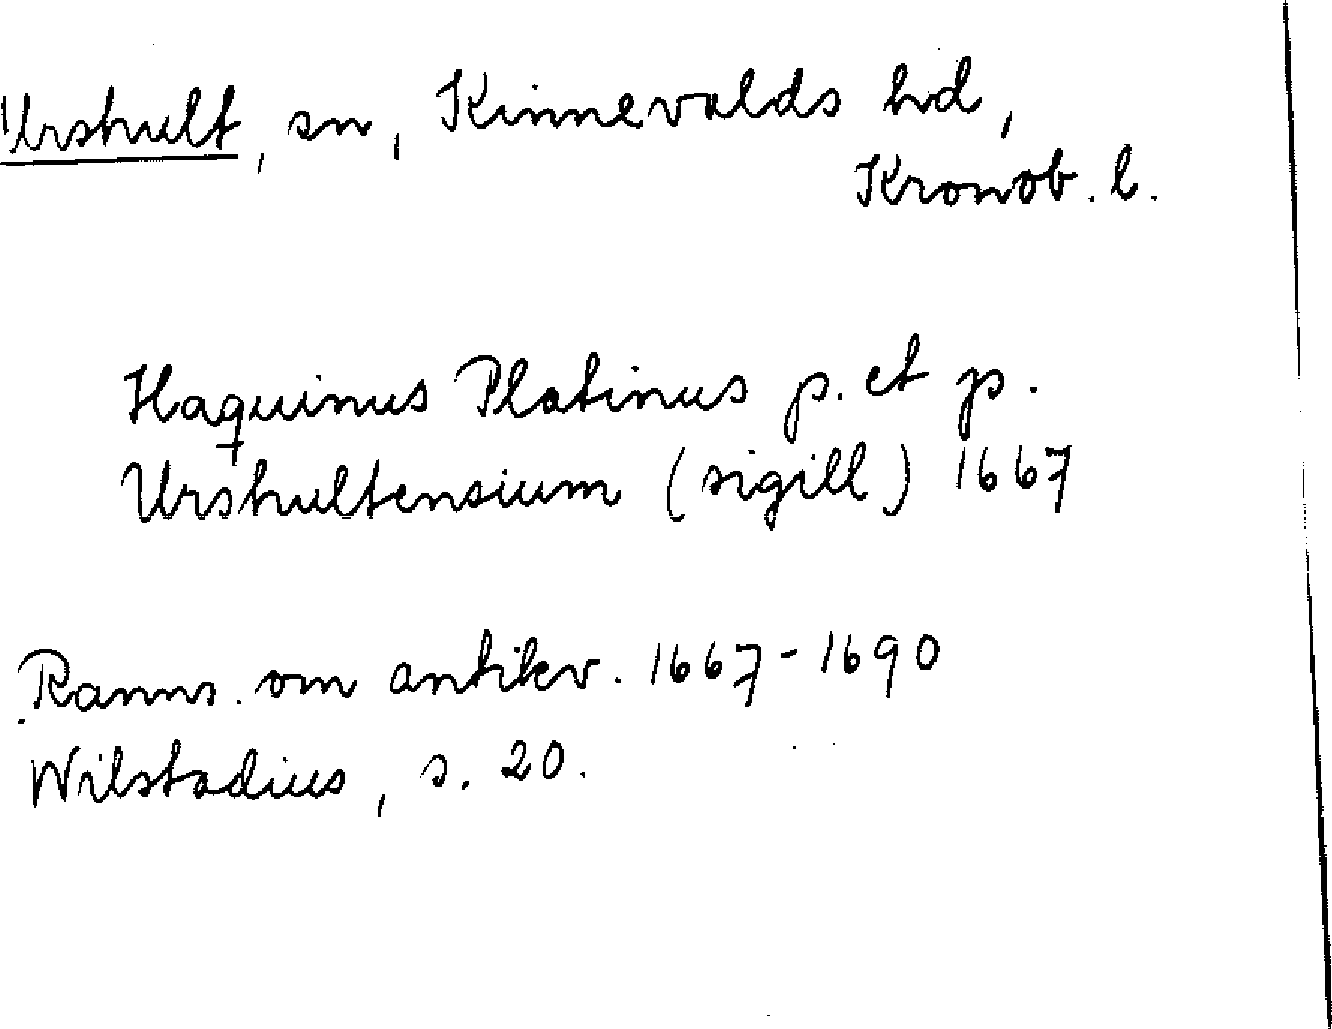 Urshult, sn, Kinnevalds hd,
Kronob. l.
Haquinus Platinus p. et p.
Urshultensium (sigill) 1667
Ranns. om antikv. 1667-1690
Wilstadius, s. 20.